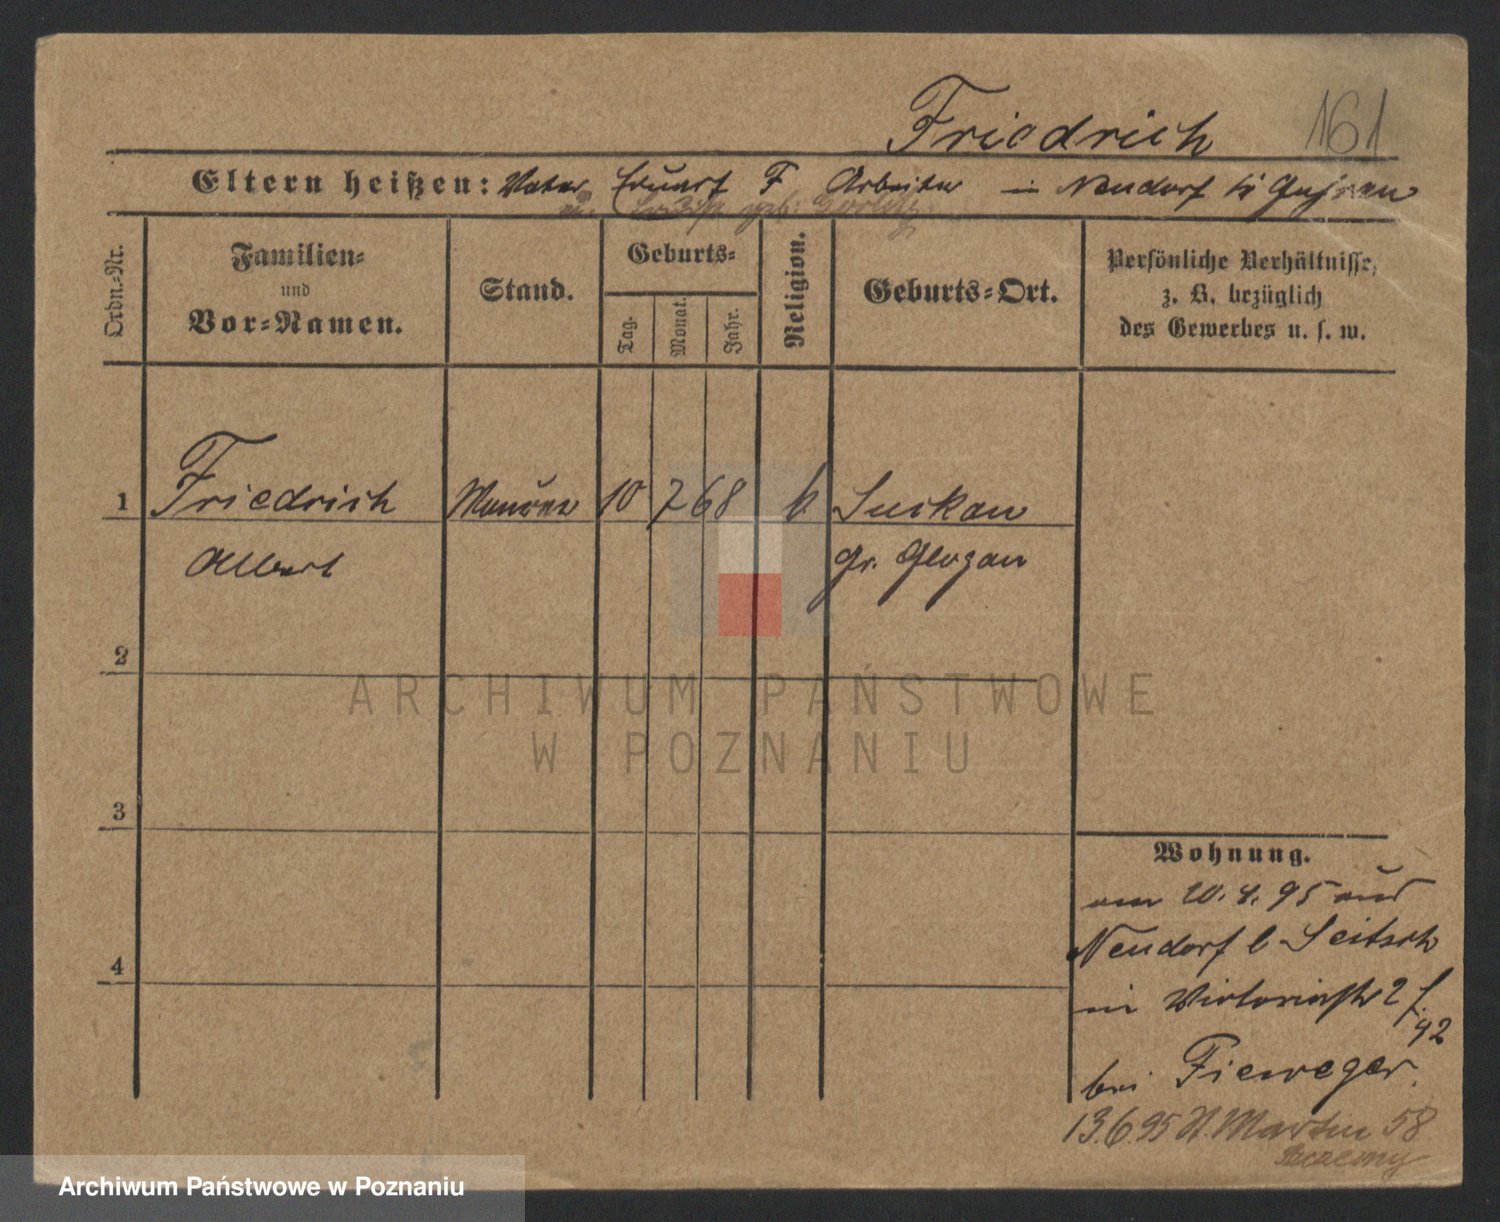 Friedrich 161
Eltern heißen: Vater F Arbeiter in Neudorf
geb.
Ordn.-Nr.
Familien-
und
Vor-Namen.
Stand.
Geburts-
Tag.
Monat.
Jahr.
Religion.
Geburts-Ort.
Persönliche Verhältnisse,
z. B. bezüglich
des Gewerbes u. s. w.
1 Friedrich Maurer 10 7 68 k Suckau
Albert Gr. Glogau
2
3
4
Wohnung.
am 20. 4. 95 aus
Neudorf b Seitsch
in Victoriastr 27
42
bei Fieweger.
13.6.95 St. Martin 58
ARCHIWUM PAŃSTWOWE
W POZNANIU
Archiwum Państwowe w Poznaniu